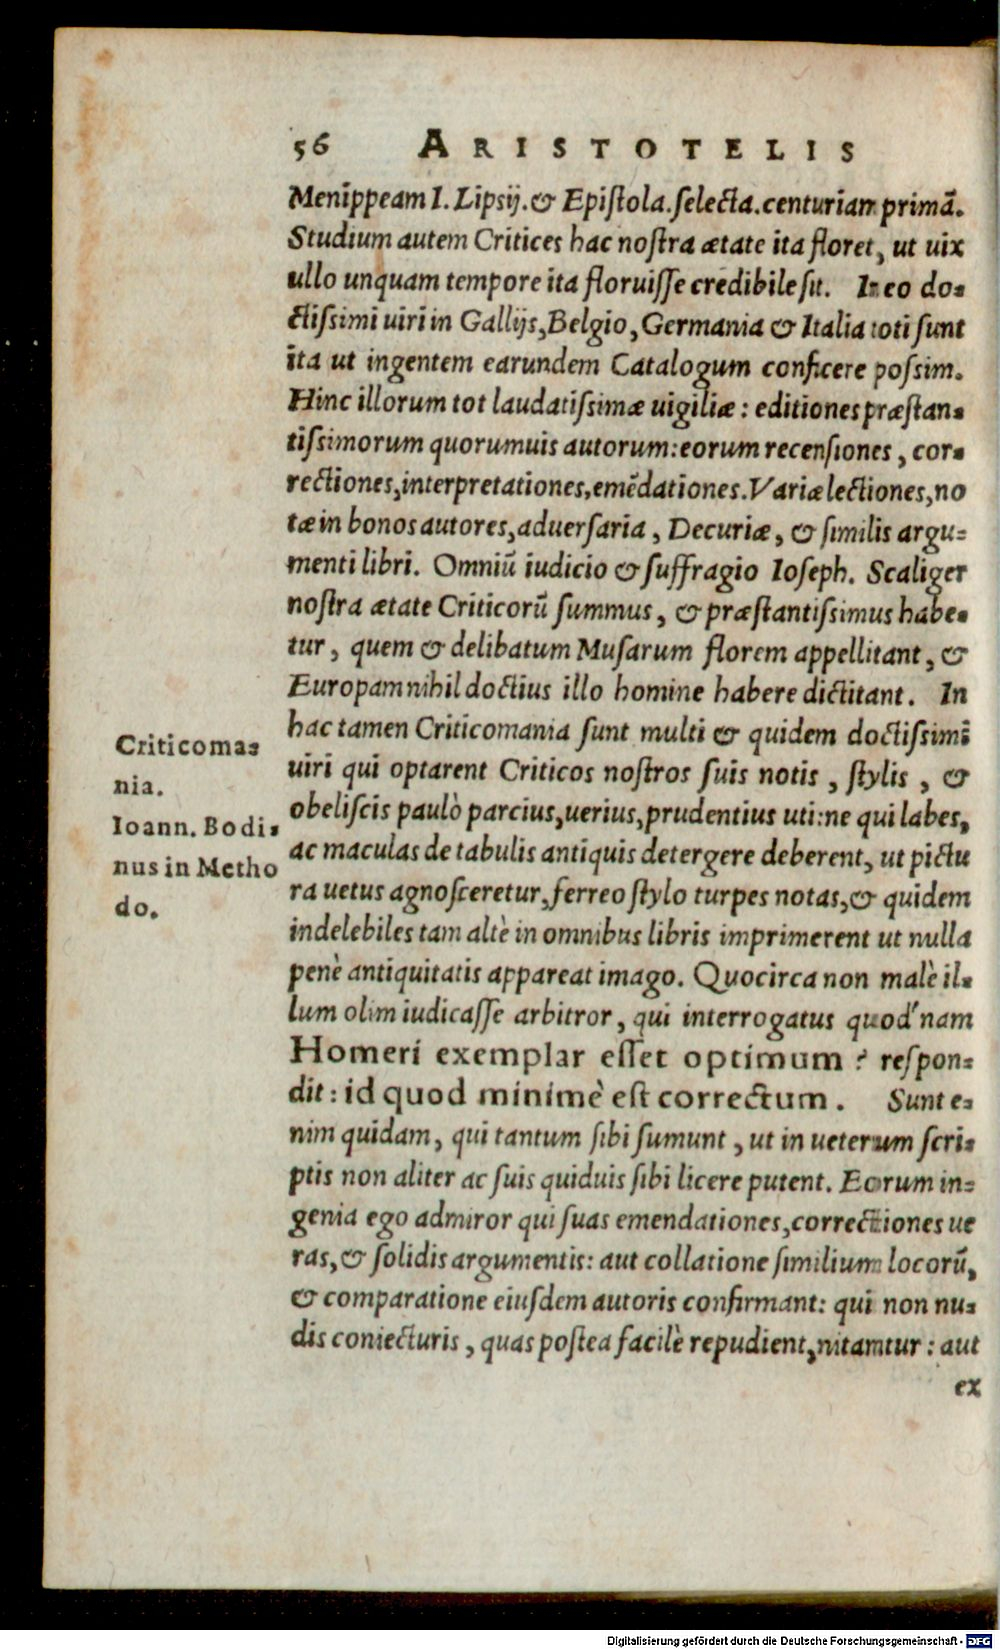 56 ARISTOTELIS
Menippeam I. Lipsij. & Epistola. selecta. centuriam primā.
Studium autem Critices hac nostra ætate ita floret, ut uix
ullo unquam tempore ita floruisse credibile sit. In eo do-
ctissimi uiri in Gallijs, Belgio, Germania & Italia toti sunt
ita ut ingentem earundem Catalogum conficere possim.
Hinc illorum tot laudatissimæ uigiliæ: editiones præstan-
tissimorum quorumuis autorum: eorum recensiones, cor-
rectiones, interpretationes, emēdationes. Variæ lectiones, no
tæ in bonos autores, aduersaria, Decuriæ, & similis argu-
menti libri. Omniū iudicio & suffragio Ioseph. Scaliger
nostra ætate Criticorū summus, & præstantissimus habe-
tur, quem & delibatum Musarum florem appellitant, &
Europam nihil doctius illo homine habere dictitant. In
hac tamen Criticomania sunt multi & quidem doctissimi
uiri qui optarent Criticos nostros suis notis, stylis, &
obeliscis paulò parcius, uerius, prudentius uti: ne qui labes,
ac maculas de tabulis antiquis detergere deberent, ut pictu
ra uetus agnosceretur, ferreo stylo turpes notas, & quidem
indelebiles tam altè in omnibus libris imprimerent ut nulla
penè antiquitatis appareat imago. Quocirca non malè il-
lum olim iudicasse arbitror, qui interrogatus quod'nam
Homeri exemplar esset optimum? respon-
dit: id quod minimè est correctum. Sunt e-
nim quidam, qui tantum sibi sumunt, ut in ueterum scri-
ptis non aliter ac suis quiduis sibi licere putent. Eorum in-
genia ego admiror qui suas emendationes, correctiones ue
ras, & solidis argumentis: aut collatione similium locorū,
& comparatione eiusdem autoris confirmant: qui non nu-
dis coniecturis, quas postea facilè repudient, nitantur: aut
ex
Criticoma-
nia.
Ioann. Bodi-
nus in Metho
do.
Digitalisierung gefördert durch die Deutsche Forschungsgemeinschaft - DFG